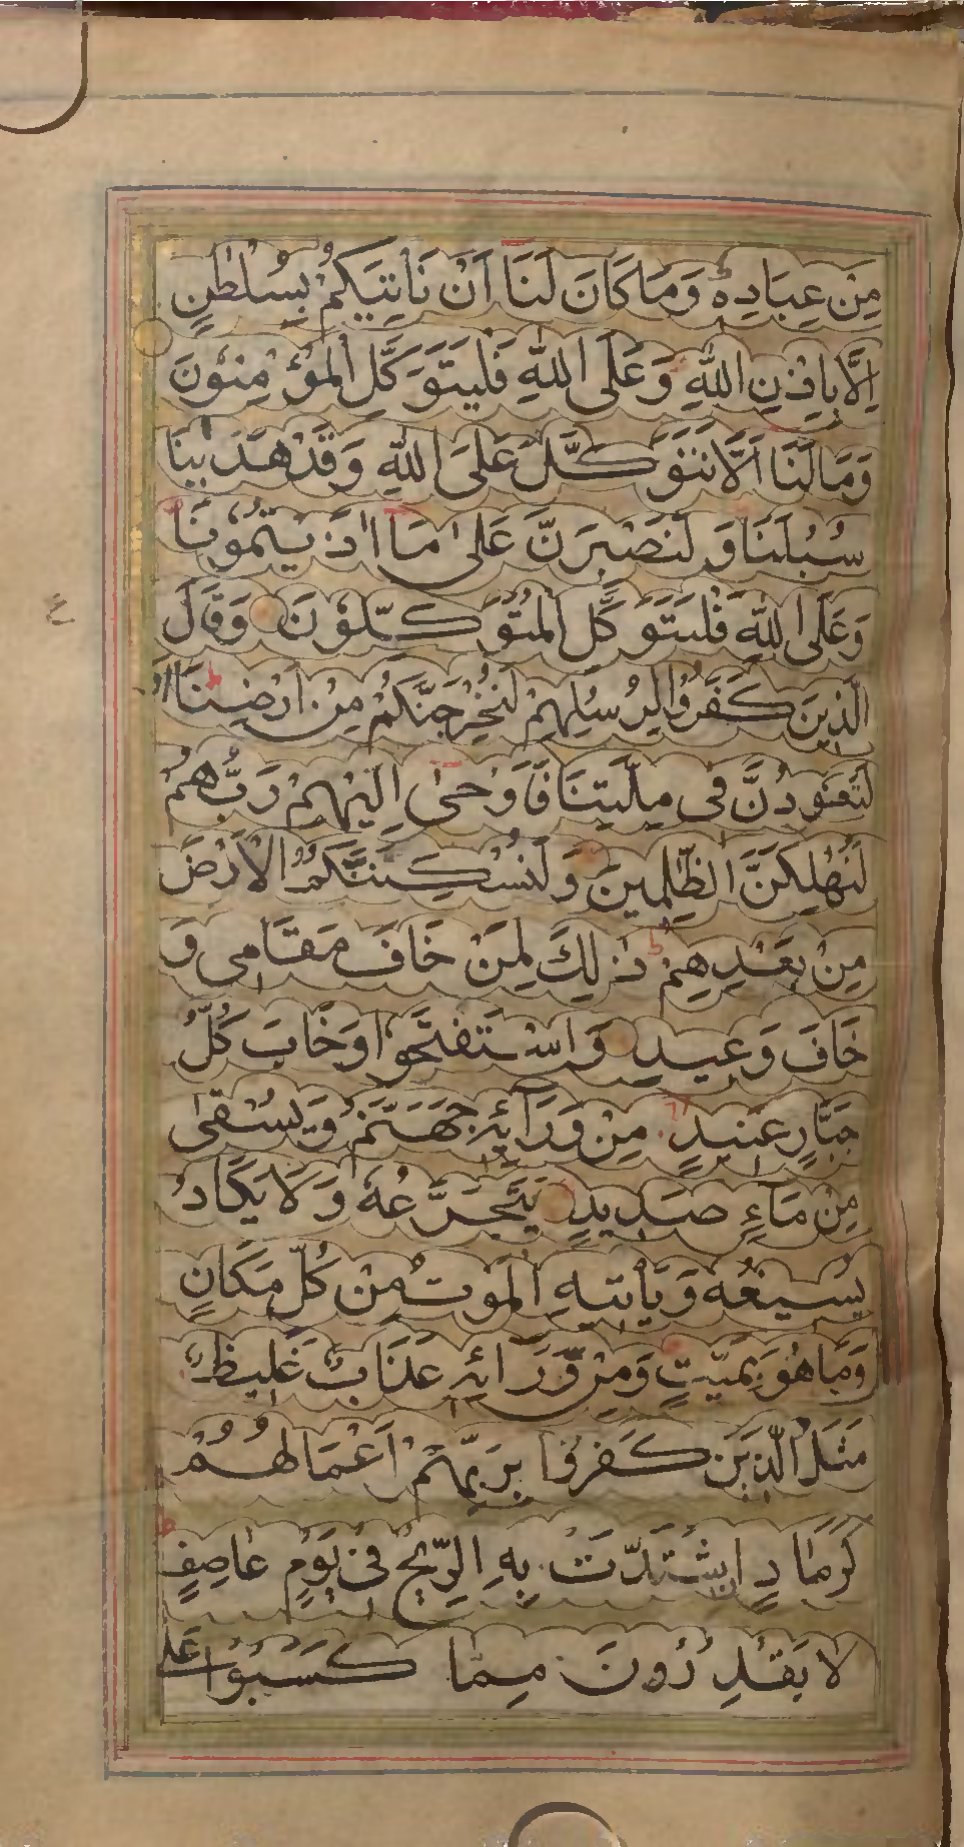 مِنْ عِبَادِهٖ وَمَا كَانَ لَنَا اَنْ نَاْتِيَكُمْ بِسُلْطٰنٍ
اِلَّا بِاِذْنِ اللّٰهِ وَعَلَى اللّٰهِ فَلْيَتَوَكَّلِ الْمُؤْمِنُوْنَ
وَمَا لَنَا اَلَّا نَتَوَكَّلَ عَلَى اللّٰهِ وَقَدْ هَدٰىنَا
سُبُلَنَا وَلَنَصْبِرَنَّ عَلٰى مَا اٰذَيْتُمُوْنَا
وَعَلَى اللّٰهِ فَلْيَتَوَكَّلِ الْمُتَوَكِّلُوْنَ وَقَالَ
الَّذِيْنَ كَفَرُوْا لِرُسُلِهِمْ لَنُخْرِجَنَّكُمْ مِنْ اَرْضِنَا اَوْ
لَتَعُوْدُنَّ فِى مِلَّتِنَا فَاَوْحٰى اِلَيْهِمْ رَبُّهُمْ
لَنُهْلِكَنَّ الظّٰلِمِيْنَ وَلَنُسْكِنَنَّكُمُ الْاَرْضَ
مِنْ بَعْدِهِمْ ذٰلِكَ لِمَنْ خَافَ مَقَامِى وَ
خَافَ وَعِيْدِ وَاسْتَفْتَحُوْا وَخَابَ كُلُّ
جَبَّارٍ عَنِيْدٍ مِنْ وَرَآئِهٖ جَهَنَّمُ وَيُسْقٰى
مِنْ مَآءٍ صَدِيْدٍ يَتَجَرَّعُهٗ وَلَا يَكَادُ
يُسِيْغُهٗ وَيَاْتِيْهِ الْمَوْتُ مِنْ كُلِّ مَكَانٍ
وَمَا هُوَ بِمَيِّتٍ وَمِنْ وَّرَآئِهٖ عَذَابٌ غَلِيْظٌ
مَثَلُ الَّذِيْنَ كَفَرُوْا بِرَبِّهِمْ اَعْمَالُهُمْ
كَرَمَادٍ اشْتَدَّتْ بِهِ الرِّيْحُ فِىْ يَوْمٍ عَاصِفٍ
لَا يَقْدِرُوْنَ مِمَّا كَسَبُوْا عَلٰى